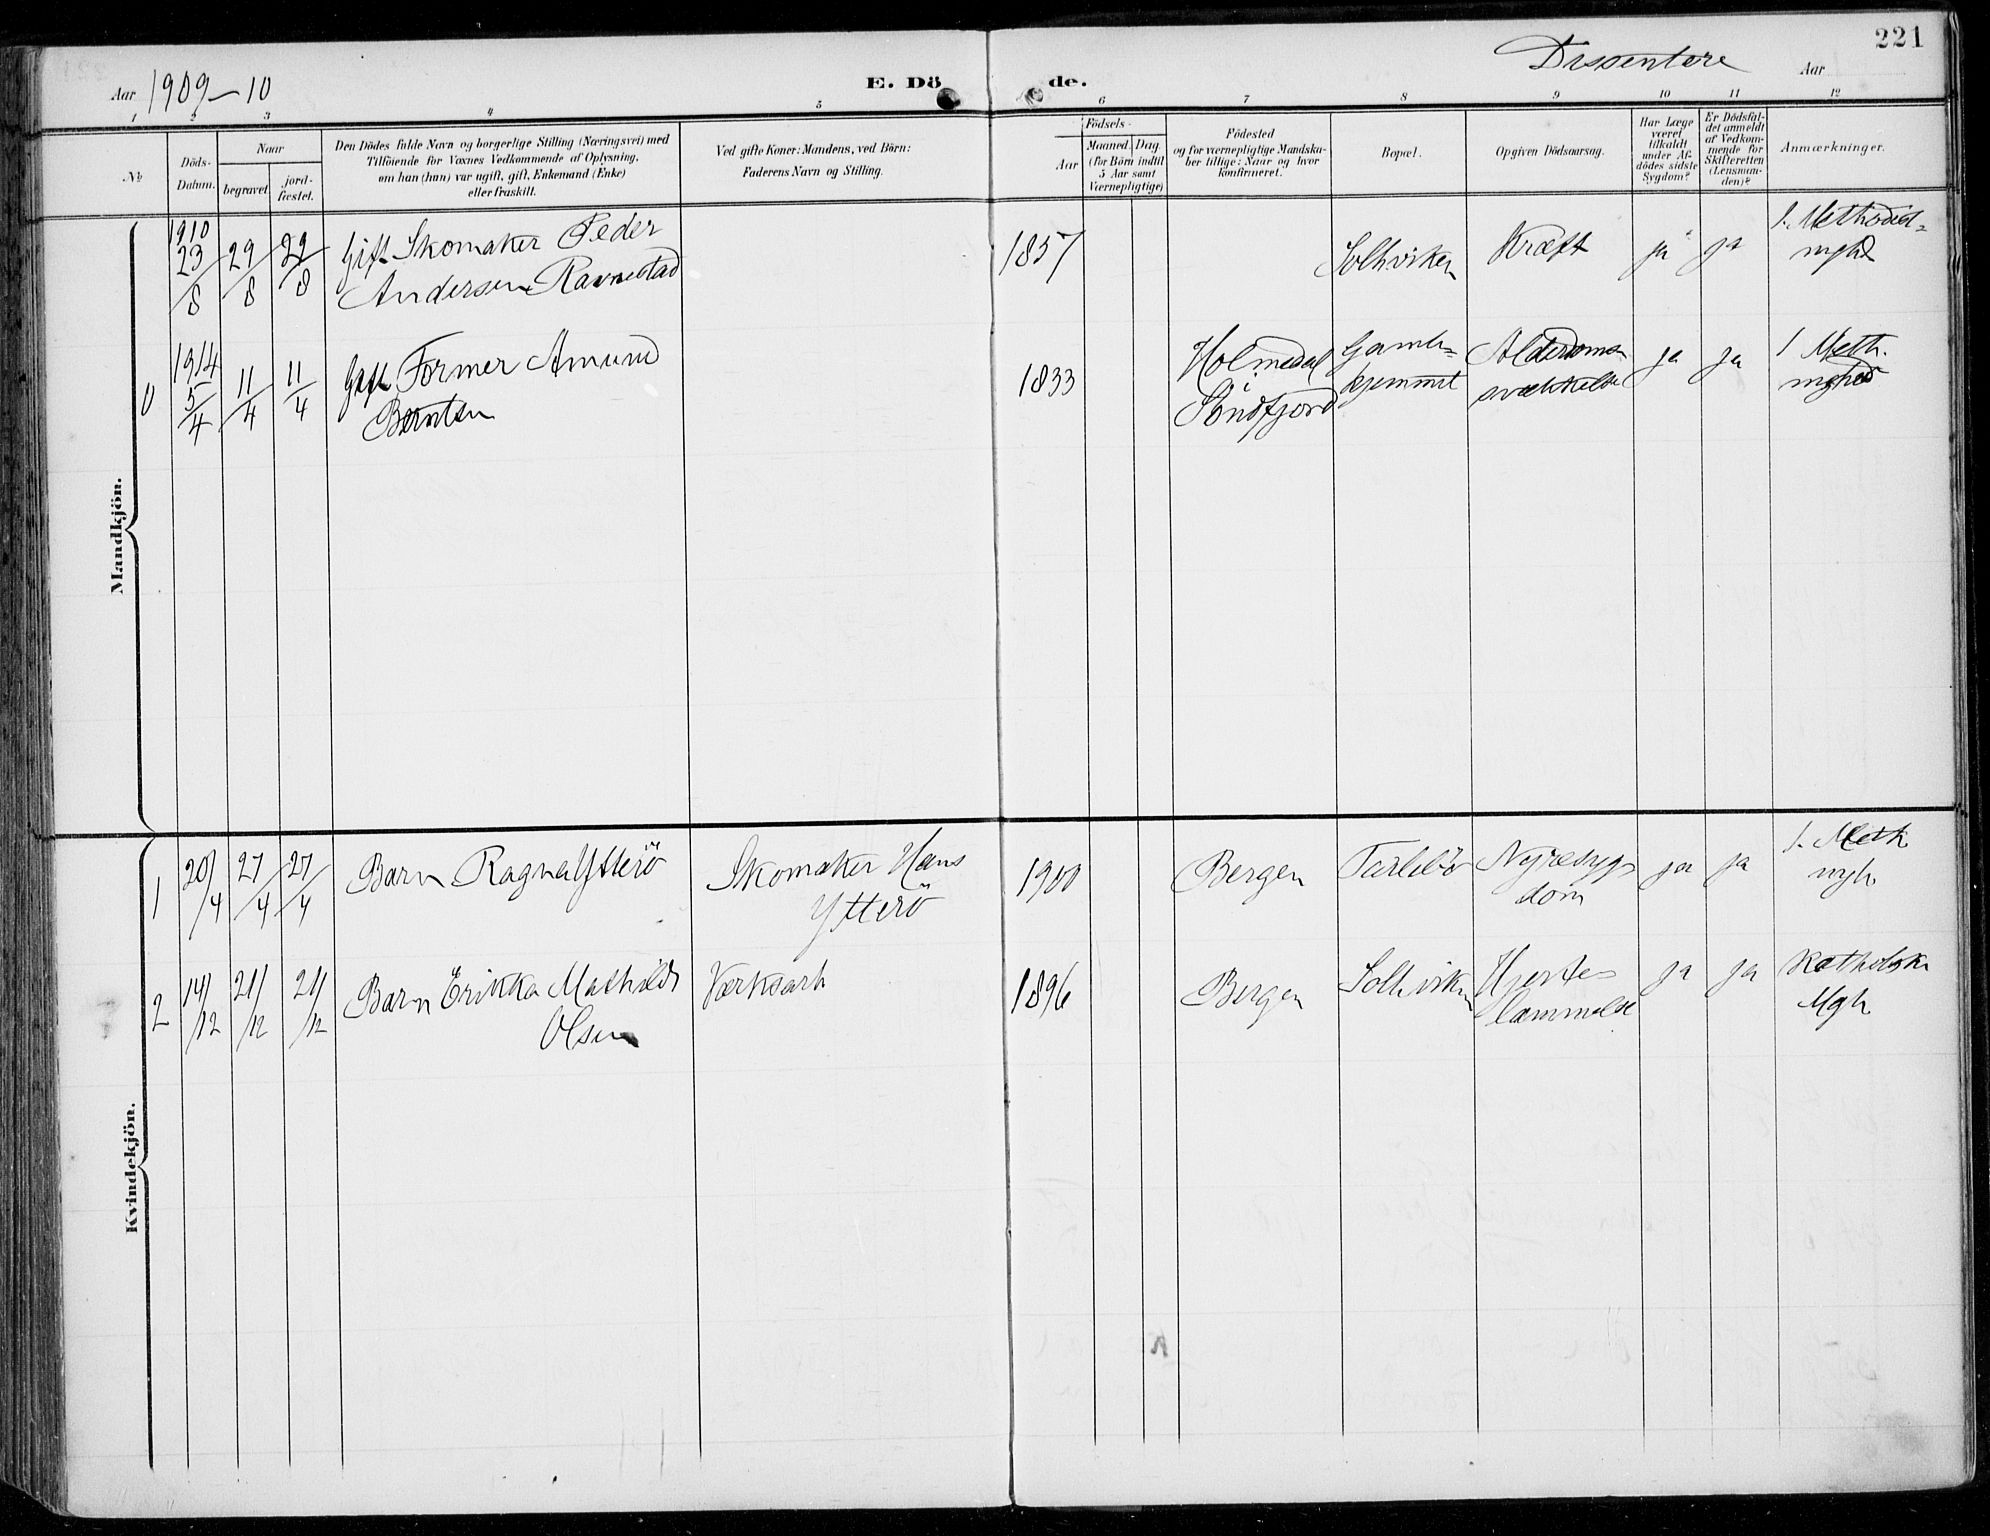 221
Aar 1909-10
E. Döde.
Dissentere
Aar
1 2 3 4 5 6 7 8 9 10 11 12
No
Döds-
Datum.
Naar
begravet
jord-
fæstet.
Den Dödes fulde Navn og borgerlige Stilling (Næringsvei) med
Tilföiende for Voxnes Vedkommende af Oplysning,
om han (hun) var ugift, gift, Enkemand (Enke)
eller fraskilt.
Ved gifte Koner: Mandens, ved Börn:
Faderens Navn og Stilling.
Födsels-
Aar
Maaned. Dag.
(for Börn indtil
5 Aar samt
Værnepligtige)
Födested
og for værnepligtige Mandska-
ber tillige: Naar og hvor
konfirmeret.
Bopæl.
Opgiven Dödsaarsag.
Har Læge
været
tilkaldt
under Af-
dödes sidste
Sygdom?
Er Dödsfal-
det anmeldt
af Vedkom-
mende for
Skifteretten
(Lensman-
den)?
Anmærkninger.
Mandkjön.
1910
23/8 29/8 29/8
Gift Skomaker Peder
Andersen Ravnestad
1857
Solhviken
Kræft
ja ja
1. Methodist=
myhd
0
1914
5/4 11/4 11/4
Gift Former Amund
Berntsen
1833
Holmedal
i
Söndfjord
Gamle=
hjemmet
Alderdoms
svækkelse
ja ja
1 Meth.
myhed
Kvindekjön.
1
20/4 27/4 27/4
Barn Ragna Ytterö
Skomaker Hans
Ytterö
1900
Bergen
Tarlebö
Nyresyg
dom
ja ja
1. Meth
myh
2
14/12 21/12 21/12
Barn Erikka Mathilde
Olsen
Værksarb
1896
Bergen
Solhviken
Hjerte=
lammelse
ja ja
Katholsk
Mgh